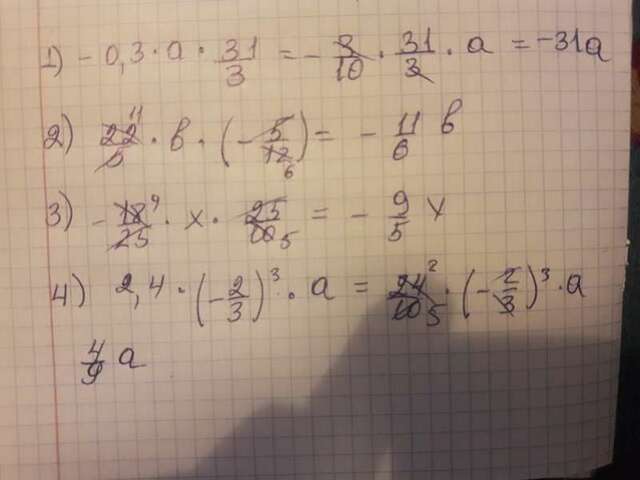 1) - 0,3 · a · 31/3 = - 3/10 · 31/3 · a = -31a
2) 22/5 · в · (- 5/12) = - 11/6 в
3) - 18/25 · x · 25/10 = - 9/5 x
4) 2,4 · (- 2/3)³ · a = 24/10 · (- 2/3)³ · a
4/9 a